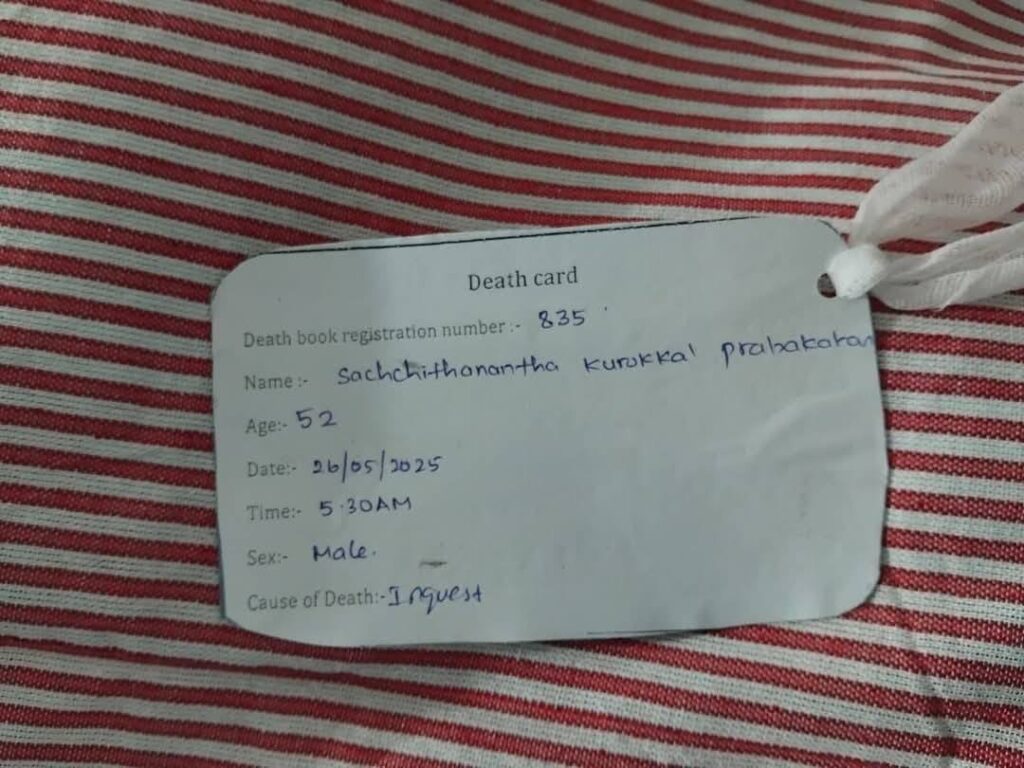 Death card
Death book registration number :- 835
Name :- Sachchithanantha Kurukkal Prabakaran
Age:- 52
Date:- 26/05/2025
Time:- 5.30AM
Sex:- Male.
Cause of Death:- Inquest